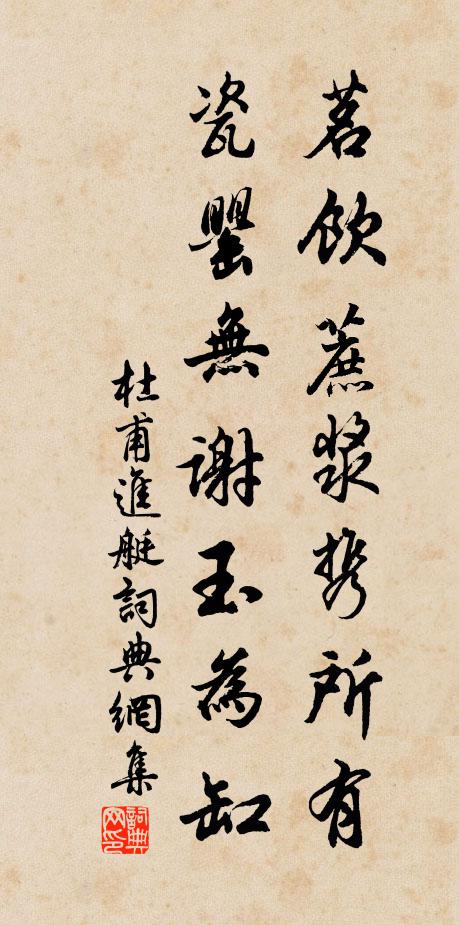 茗飲蔗漿携所有
瓷罌無謝玉為缸
杜甫進艇詞典網集
詞典
网印